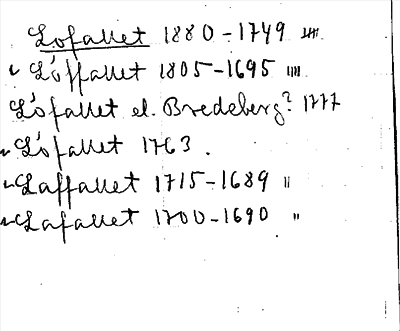 Lofallet 1880-1749 ""
✓ Lóffallet 1805-1695 ""
Lófallet el. Bredeberg? 1777
✓ Lófallet 1763.
✓ Laffallet 1715-1689 "
✓ Lafallet 1700-1690 "